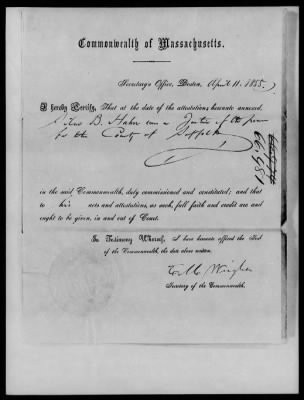 Commonwealth of Massachusetts.
Secretary's Office, Boston, April 11. 1855.
I hereby Certify, That at the date of the attestations hereunto annexed,
Silas B. Hahn was a Justice of the peace
for the County of Suffolk
in the said Commonwealth, duly commissioned and constituted; and that
to his acts and attestations, as such, full faith and credit are and
ought to be given, in and out of Court.
In Testimony Whereof, I have hereunto affixed the Seal
of the Commonwealth, the date above written.
Secretary of the Commonwealth.